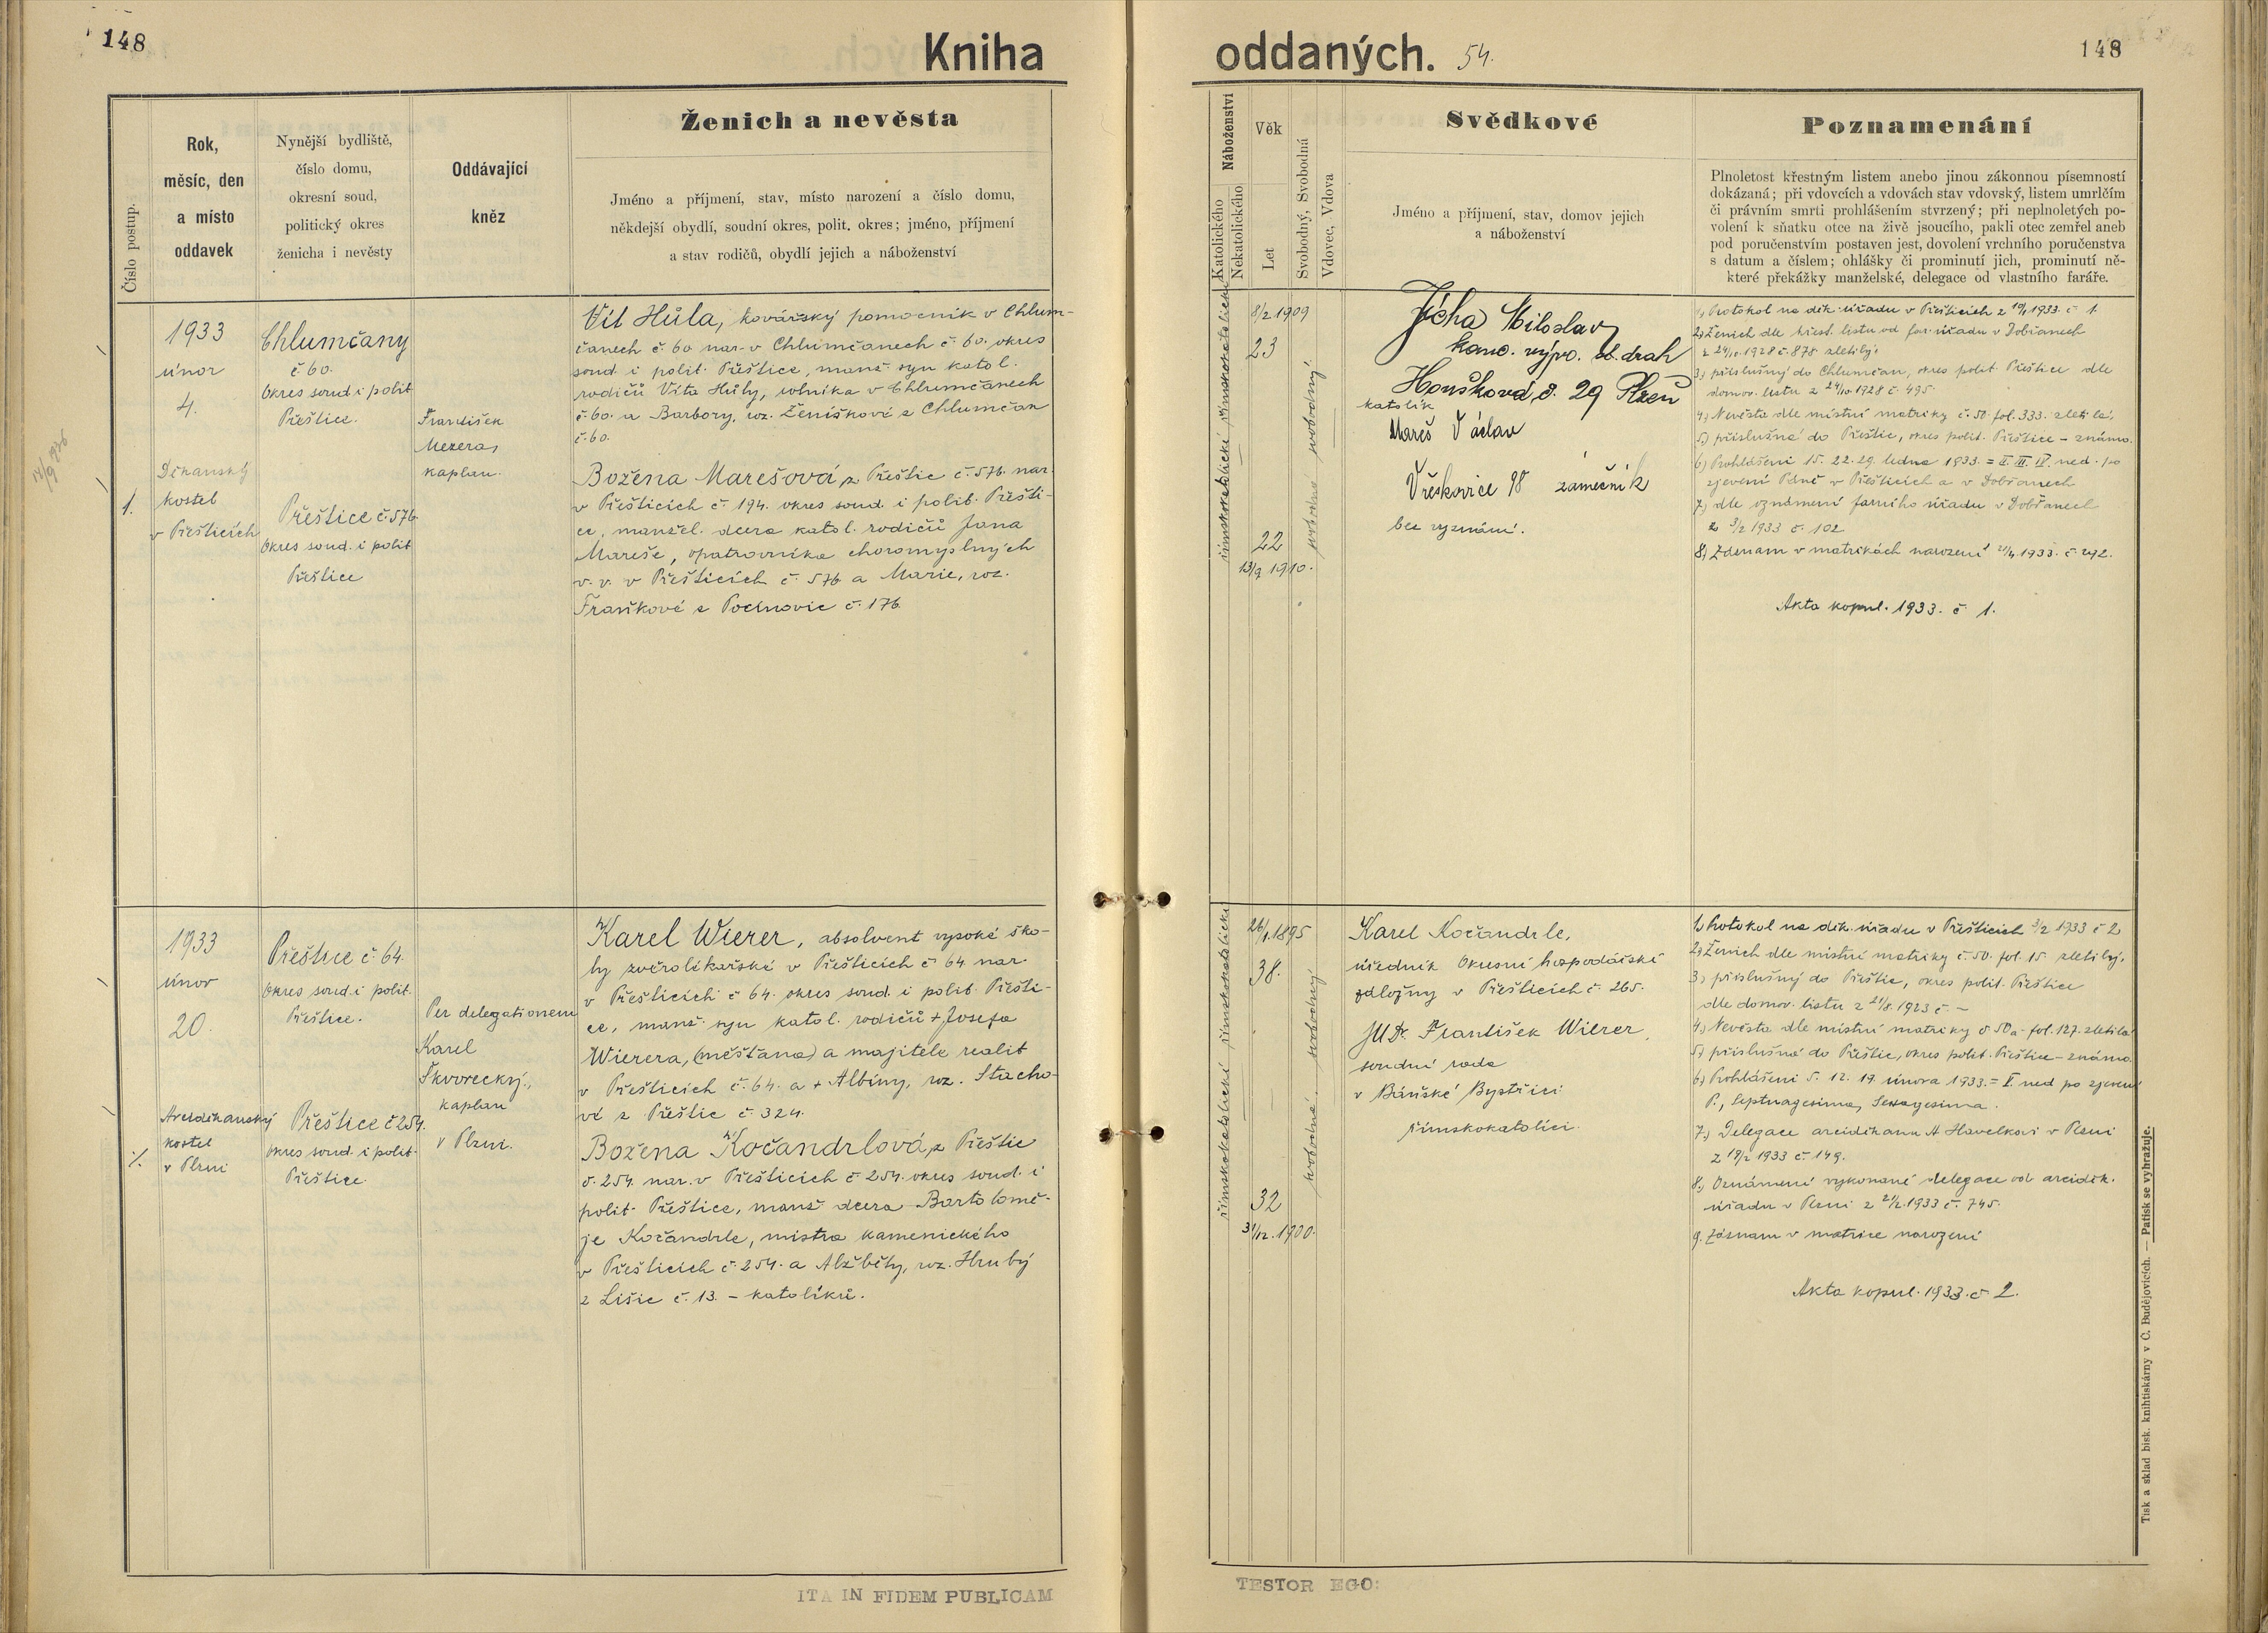 148
Kniha
Číslo postup.
Rok,
měsíc, den
a místo
oddavek
Nynější bydliště,
číslo domu,
okresní soud,
politický okres
ženicha i nevěsty
Oddávající
kněz
Ženich a nevěsta
Jméno a příjmení, stav, místo narození a číslo domu,
někdejší obydlí, soudní okres, polit. okres; jméno, příjmení
a stav rodičů, obydlí jejich a náboženství
1.
1933
únor
4.
Děkanský
kostel
v Přešticích
Chlumčany
č 60.
Okres soud. i polit
Přeštice.
Přeštice č. 576.
Okres soud. i polit
Přeštice
František
Mezera,
kaplan.
Vít Hůla, kovářský pomocník v Chlum-
čanech č. 60 nar. v Chlumčanech č. 60. okres
soud. i polit. Přeštice, manž. syn katol.
rodičů Víta Hůly, rolníka v Chlumčanech
č. 60. a Barbory, roz. Ženíškové z Chlumčan
č. 60.
Božena Marešová, z Přeštic č. 576. nar.
v Přešticích č. 194. okres soud. i polit. Přešti-
ce, manžel. dcera katol. rodičů Jana
Mareše, opatrovníka choromyslných
v. v. v Přešticích č. 576 a Marie, roz.
Fraňkové z Pocinovic č. 176.
1933
únor
20.
Arciděkanský
kostel
v Plzni
Přeštice č. 64.
Okres soud. i polit.
Přeštice.
Přeštice č 254.
okres soud. i polit.
Přeštice.
Per delegationem
Karel
Škvorecký,
kaplan
v Plzni.
Karel Wierer, absolvent vysoké ško-
ly zvěrolékařské v Přešticích č 64 nar.
v Přešticích č 64. okres soud. i polit. Přešti-
ce, manž. syn katol. rodičů + Josefa
Wierera, (měšťana) a majitele realit
v Přešticích č. 64. a + Albíny, roz. Stacho-
vé z Přeštic č. 324.
Božena Kočandrlová, z Přeštic
č. 254. nar. v Přešticích č. 254. okres soud. i
polit. Přeštice, manž. dcera Bartolomě-
je Kočandrle, mistra kamenického
v Přešticích č. 254. a Alžběty, roz. Hrubý
z Lišic č. 13. – katolíků.
ITA IN FIDEM PUBLICAM
oddaných. 54.
148
Náboženství
Katolického
Nekatolického
Věk
Let
Svobodný, Svobodná
Vdovec, Vdova
Svědkové
Jméno a příjmení, stav, domov jejich
a náboženství
Poznamenání
Plnoletost křestným listem anebo jinou zákonnou písemností
dokázaná; při vdovcích a vdovách stav vdovský, listem umrlčím
či právním smrti prohlášením stvrzený; při neplnoletých po-
volení k sňatku otce na živě jsoucího, pakli otec zemřel aneb
pod poručenstvím postaven jest, dovolení vrchního poručenstva
s datum a číslem; ohlášky či prominutí jich, prominutí ně-
které překážky manželské, delegace od vlastního faráře.
římskokatolické římskokatolické
8/2 1909
23
22
13/9 1910.
svobodná svobodný
Jícha Miloslav
kanc. výpr. st. drah
Houškova č. 29 Plzeň
katolík
Mareš Václav
Vřeskovice 98 zámečník
bez vyznání.
1) Protokol na děk. úřadu v Přešticích z 10/1 1933. č 1.
2) Ženich dle křest. listu od far. úřadu v Dobřanech
z 24/10. 1928 č. 875 zletilý.
3) příslušný do Chlumčan, okres polit. Přeštice dle
domov. listu z 24/10 1928 č. 495.
4) Nevěsta dle místní matriky č. 50. fol. 333. zletilá.
5) příslušná do Přeštic, okres polit. Přeštice – známo.
6) Prohlášeni 15. 22. 29. ledna 1933. = II. III. IV. ned. po
zjevení Páně v Přešticích a v Dobřanech
7) dle oznámení farního úřadu v Dobřanech
z 3/2 1933 č. 102
8) Záznam v matrikách narození 21/4. 1933. č. 292.
Akta kopul. 1933. č 1.
římskokatolické římskokatolické
26/1. 1895
38.
32
31/12. 1900.
svobodná. svobodný
Karel Kočandrle,
úředník Okresní hospodářské
záložny v Přešticích č. 265.
JUDr. František Wierer,
soudní rada
v Báňské Bystřici
římskokatolíci.
1) Protokol na děk. úřadu v Přešticích 3/2 1933 č 2
2) Ženich dle místní matriky č. 50. fol. 15. zletilý.
3) příslušný do Přeštic, okres polit. Přeštice
dle domov. listu z 21/8. 1923 č –
4) Nevěsta dle místní matriky č 50a. fol. 127. zletilá
5) příslušná do Přeštic, okres polit. Přeštice – známo
6) Prohlášeni 5. 12. 19. února 1933. = V. ned po zjevení
P., Septuagesima, Sexagesima.
7) Delegace arciděkanu A Havelkovi v Plzni
z 19/2 1933 č. 149.
8) Oznámení vykonané delegace od arciděk.
úřadu v Plzni z 21/2. 1933 č. 745.
9. Záznam v matrice narození
Akta kopul. 1933. č 2.
TESTOR EGO:
Tisk a sklad bisk. knihtiskárny v Č. Budějovicích. — Patisk se vyhražuje.